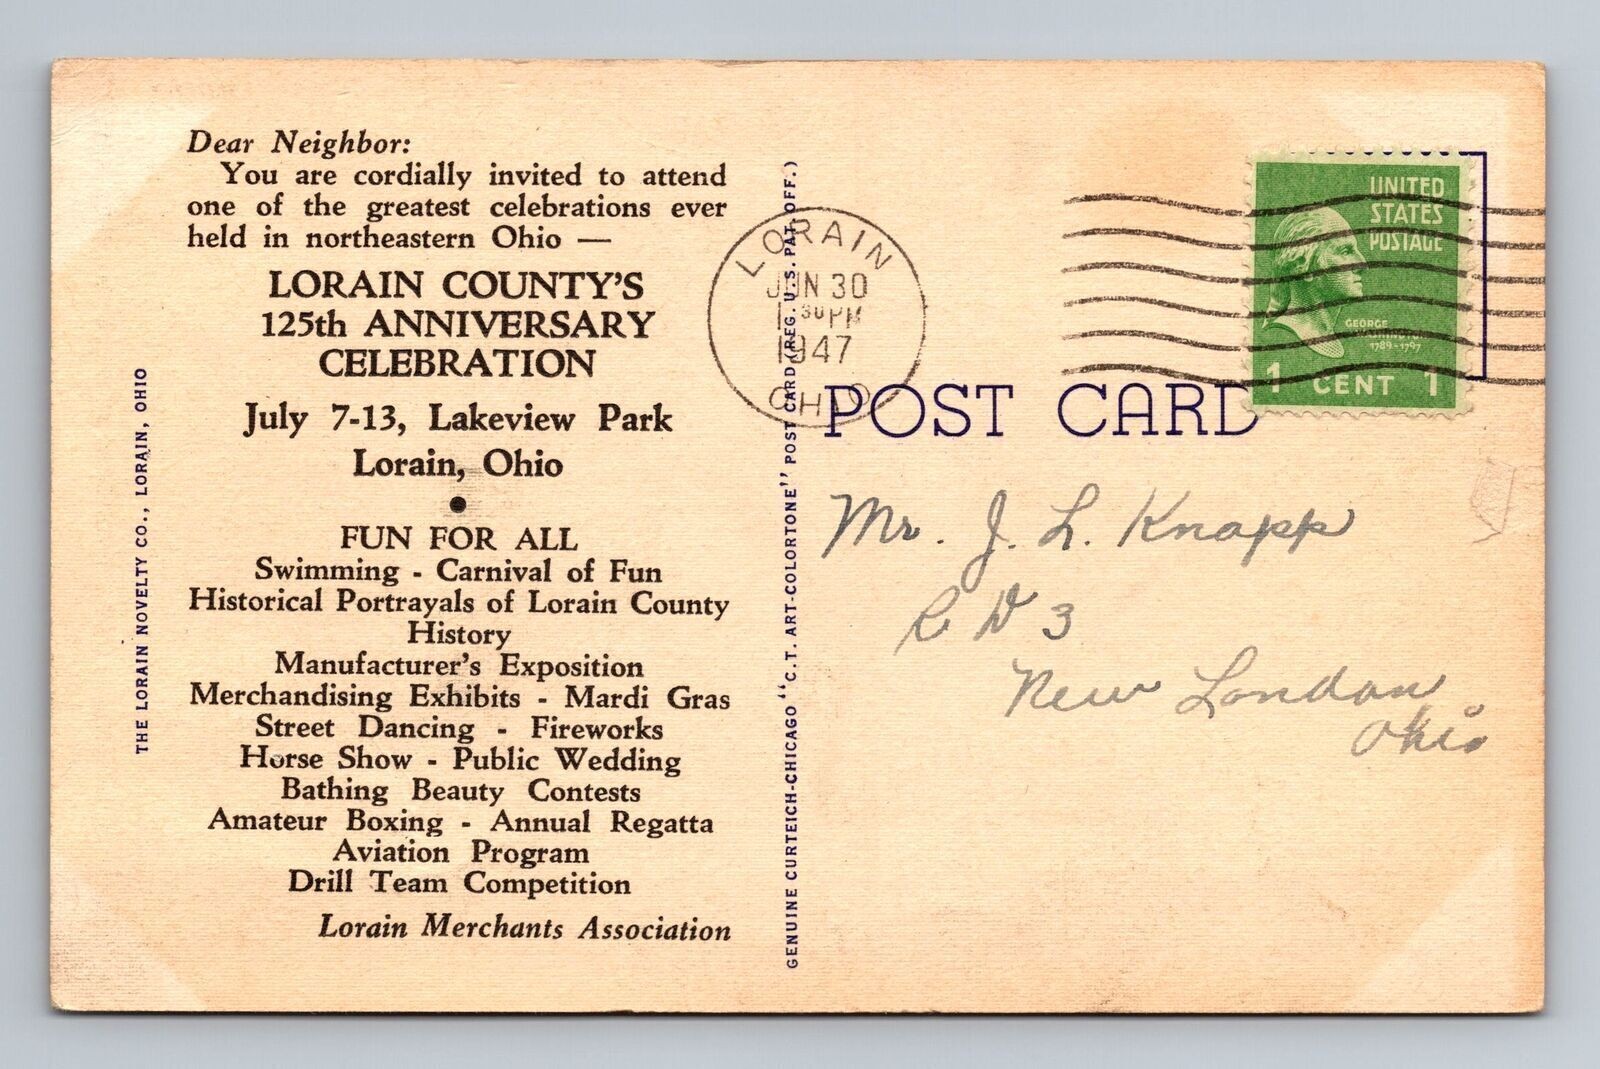 Dear Neighbor:
You are cordially invited to attend
one of the greatest celebrations ever
held in northeastern Ohio —
LORAIN COUNTY'S
125th ANNIVERSARY
CELEBRATION
July 7-13, Lakeview Park
Lorain, Ohio
●
FUN FOR ALL
Swimming - Carnival of Fun
Historical Portrayals of Lorain County
History
Manufacturer's Exposition
Merchandising Exhibits - Mardi Gras
Street Dancing - Fireworks
Horse Show - Public Wedding
Bathing Beauty Contests
Amateur Boxing - Annual Regatta
Aviation Program
Drill Team Competition
Lorain Merchants Association
THE LORAIN NOVELTY CO., LORAIN, OHIO
GENUINE CURTEICH-CHICAGO "C.T. ART-COLORTONE" POST CARD (REG. U.S. PAT. OFF.)
LORAIN
JUN 30
1947
OHIO
UNITED
STATES
POSTAGE
GEORGE
WASHINGTON
1789-1797
1 CENT 1
POST CARD
Mr. J. L. Knapp
R D 3
New London
Ohio